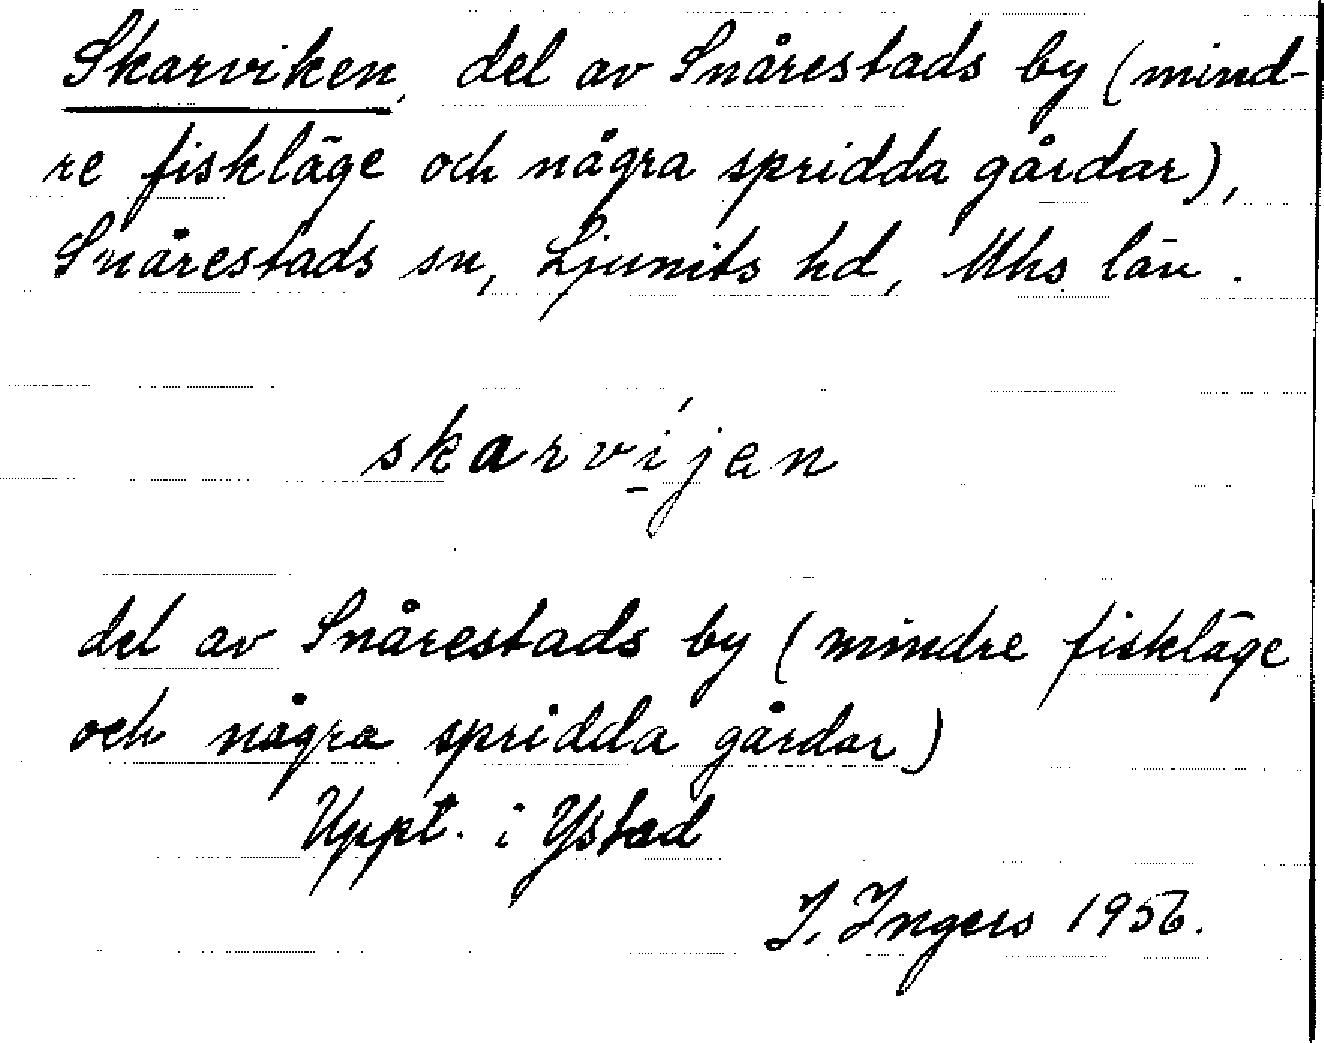 Skarviken, del av Snårestads by (mind-
re fiskläge och några spridda gårdar),
Snårestads sn, Ljunits hd, Mhs län.
skarvíjan
del av Snårestads by (mindre fiskläge
och några spridda gårdar)
Uppt. i Ystad
I. Ingers 1956.